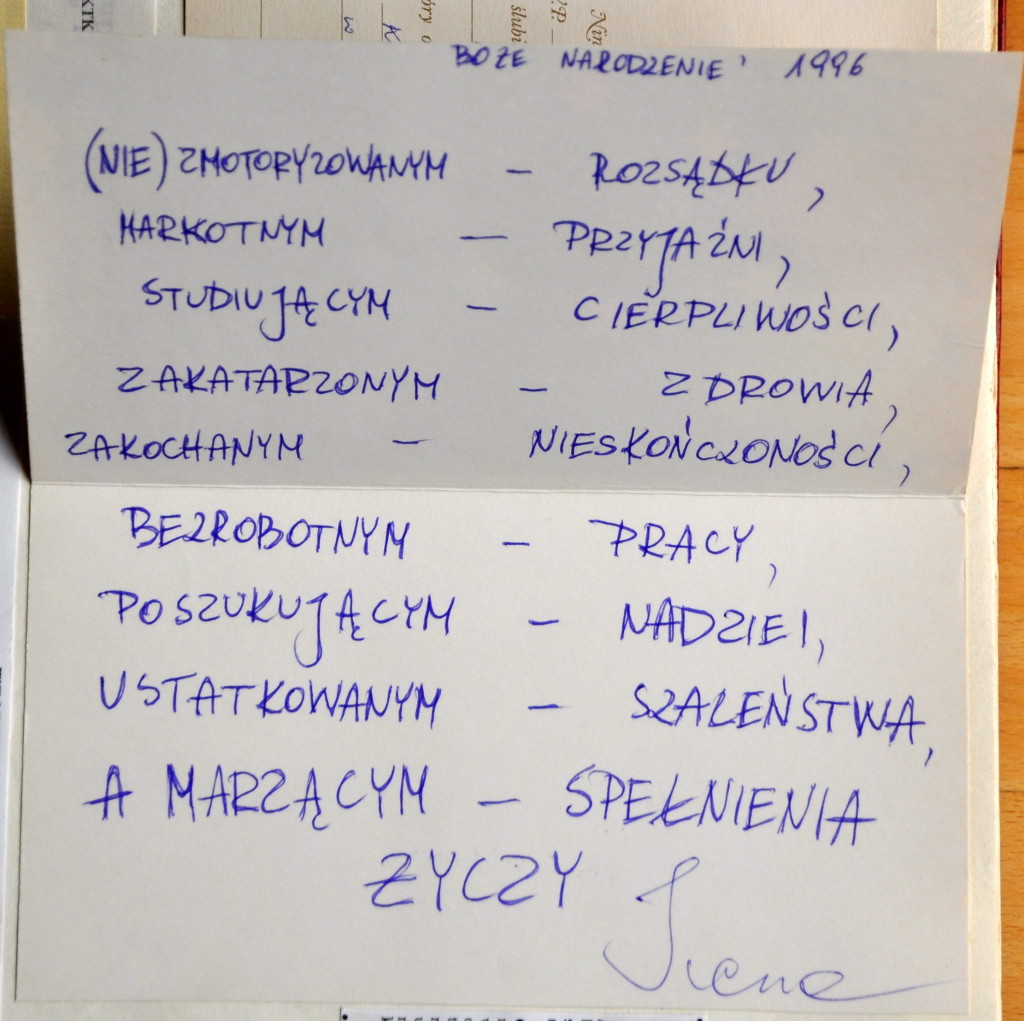 KTK
óry o
K
w
V.P. –
ślubi
Nin
BOŻE NARODZENIE' 1996
(NIE) ZMOTORYZOWANYM – ROZSĄDKU,
MARKOTNYM – PRZYJAŹNI,
STUDIUJĄCYM – CIERPLIWOŚCI,
ZAKATARZONYM – ZDROWIA,
ZAKOCHANYM – NIESKOŃCZONOŚCI,
BEZROBOTNYM – PRACY,
POSZUKUJĄCYM – NADZIEI,
USTATKOWANYM – SZALEŃSTWA,
A MARZĄCYM – SPEŁNIENIA
ŻYCZY Irena